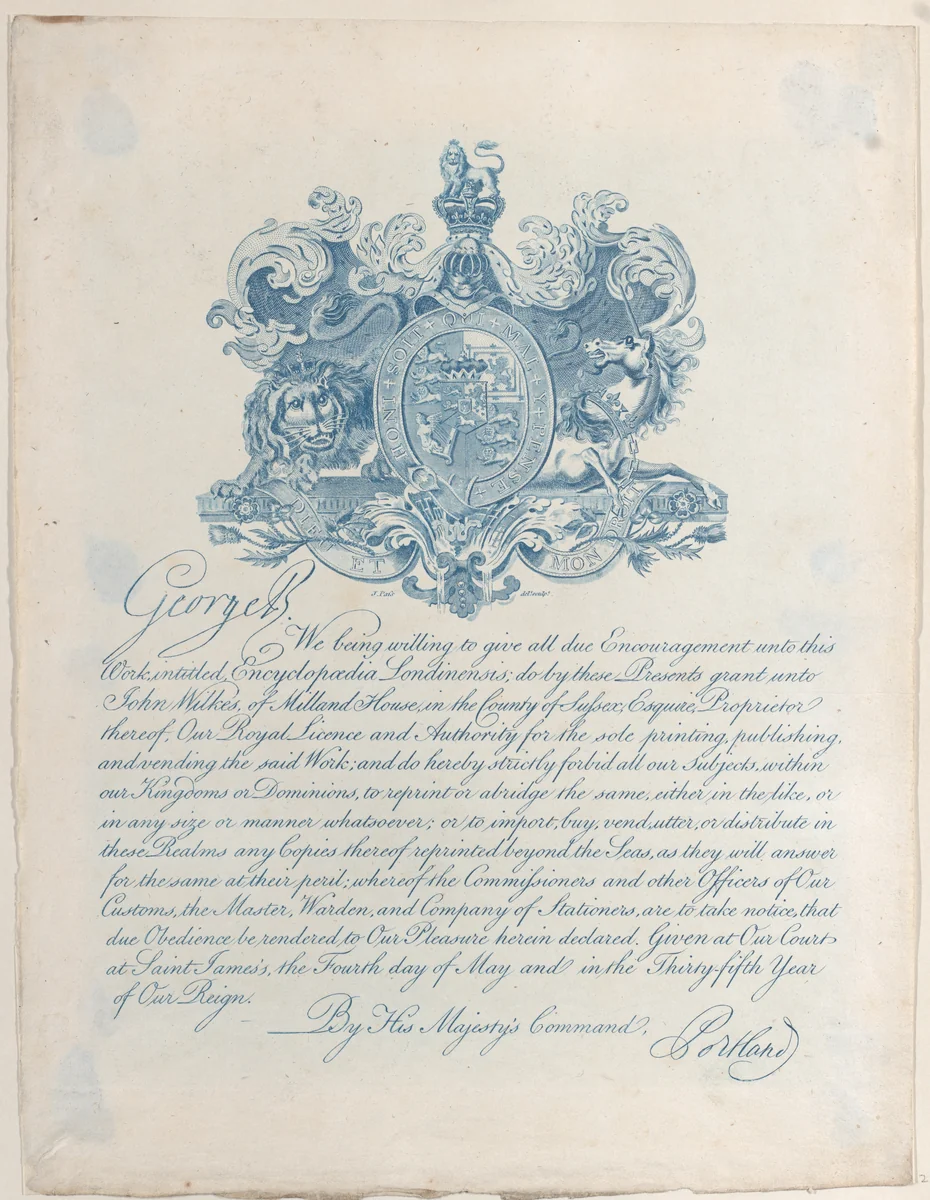 HONI + SOIT + QUI + MAL + Y + PENSE +
DIEU ET MON DROIT
J. Pass del. sculpt.
George R.
We being willing to give all due Encouragement unto this
Work, intitled, Encyclopædia Londinensis; do by these Presents grant unto
John Wilkes, of Milland House, in the County of Sussex, Esquire, Proprietor
thereof, Our Royal Licence and Authority for the sole printing, publishing,
and vending the said Work; and do hereby strictly forbid all our Subjects, within
our Kingdoms or Dominions, to reprint or abridge the same, either in the like, or
in any size or manner whatsoever; or to import, buy, vend, utter, or distribute in
these Realms any Copies thereof reprinted beyond the Seas, as they will answer
for the same at their peril; whereof the Commissioners and other Officers of Our
Customs, the Master, Warden, and Company of Stationers, are to take notice, that
due Obedience be rendered to Our Pleasure herein declared. Given at Our Court
at Saint James's, the Fourth day of May and in the Thirty-fifth Year
of Our Reign.
By His Majesty's Command,
Portland
2